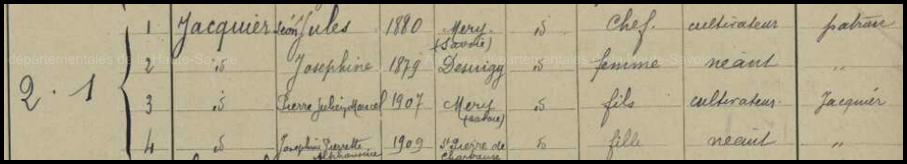 1 Jacquier Léon Jules 1880 Mery (Savoie) id chef cultivateur patron
départementales de la Haute-Savoie
2 id Josephine 1879 Desingy id femme néant "
2 . 1
3 id Pierre Julien Marcel 1907 Mery (Savoie) id fils cultivateur Jacquier
4 id Josephine Pierrette Alphonsine 1909 St Pierre de Chartreuse id fille néant "